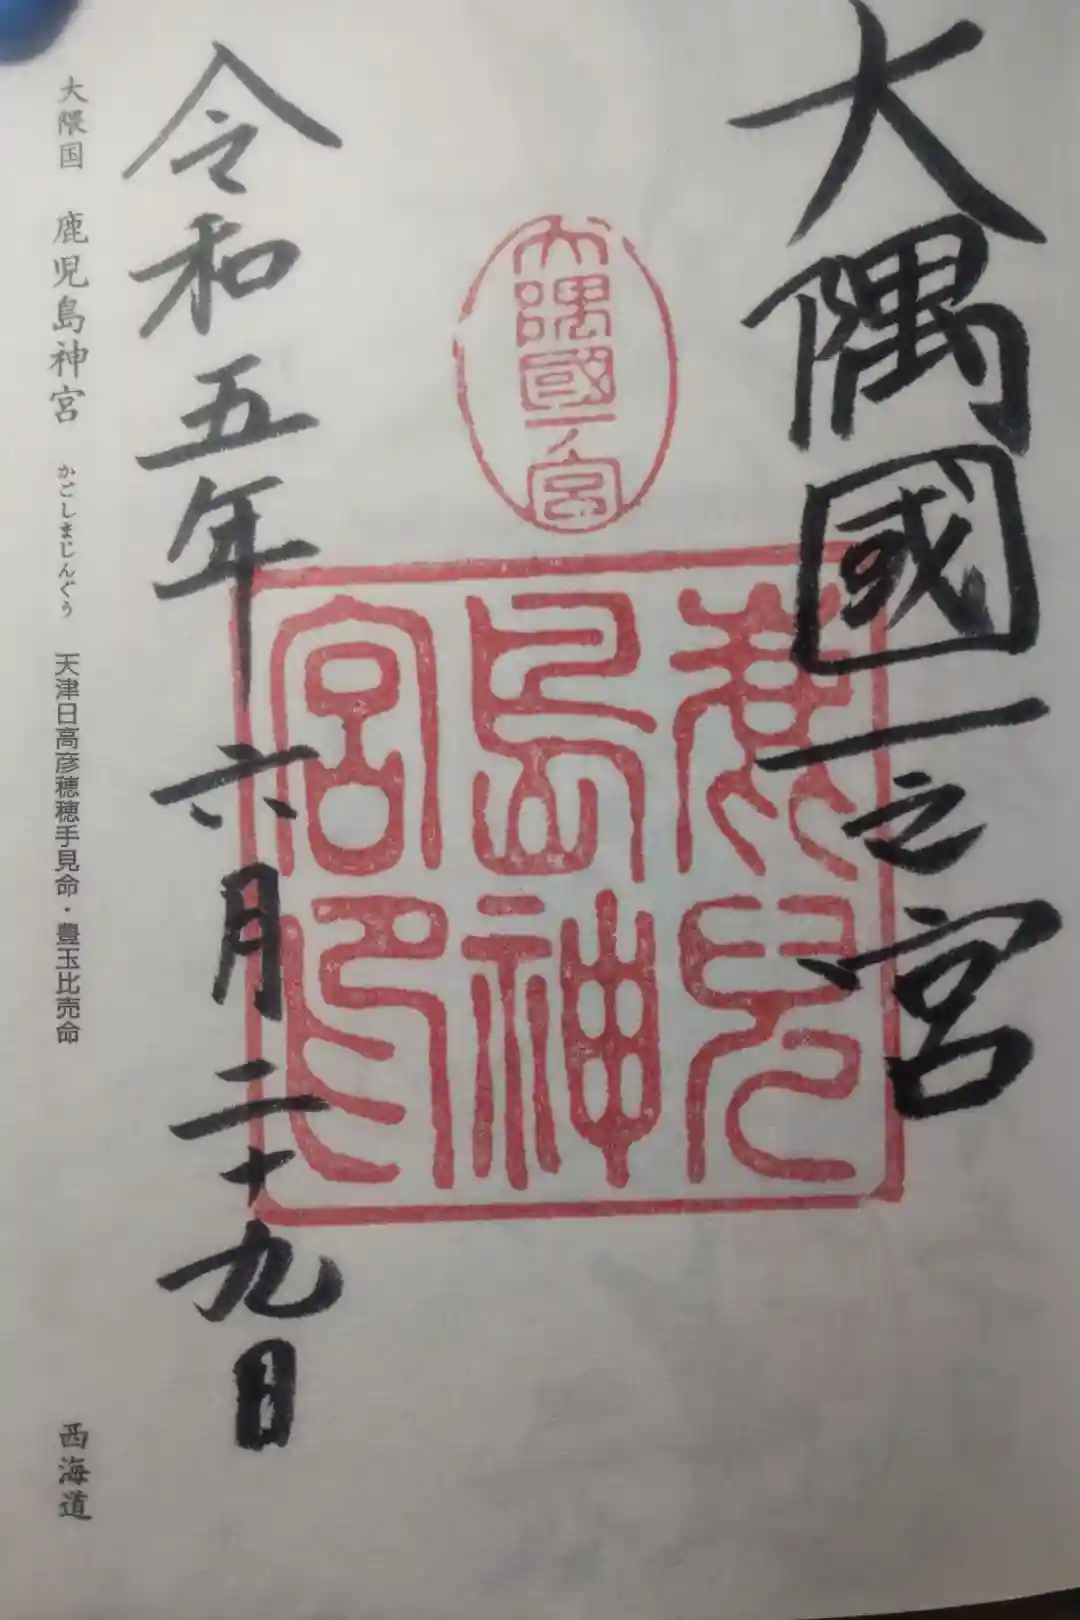 大隅國一之宮
大隅國一宮
鹿兒島神宮印
令和五年六月二十九日
大隈国 鹿児島神宮 かごしまじんぐう 天津日高彦穂穂手見命・豊玉比売命 西海道